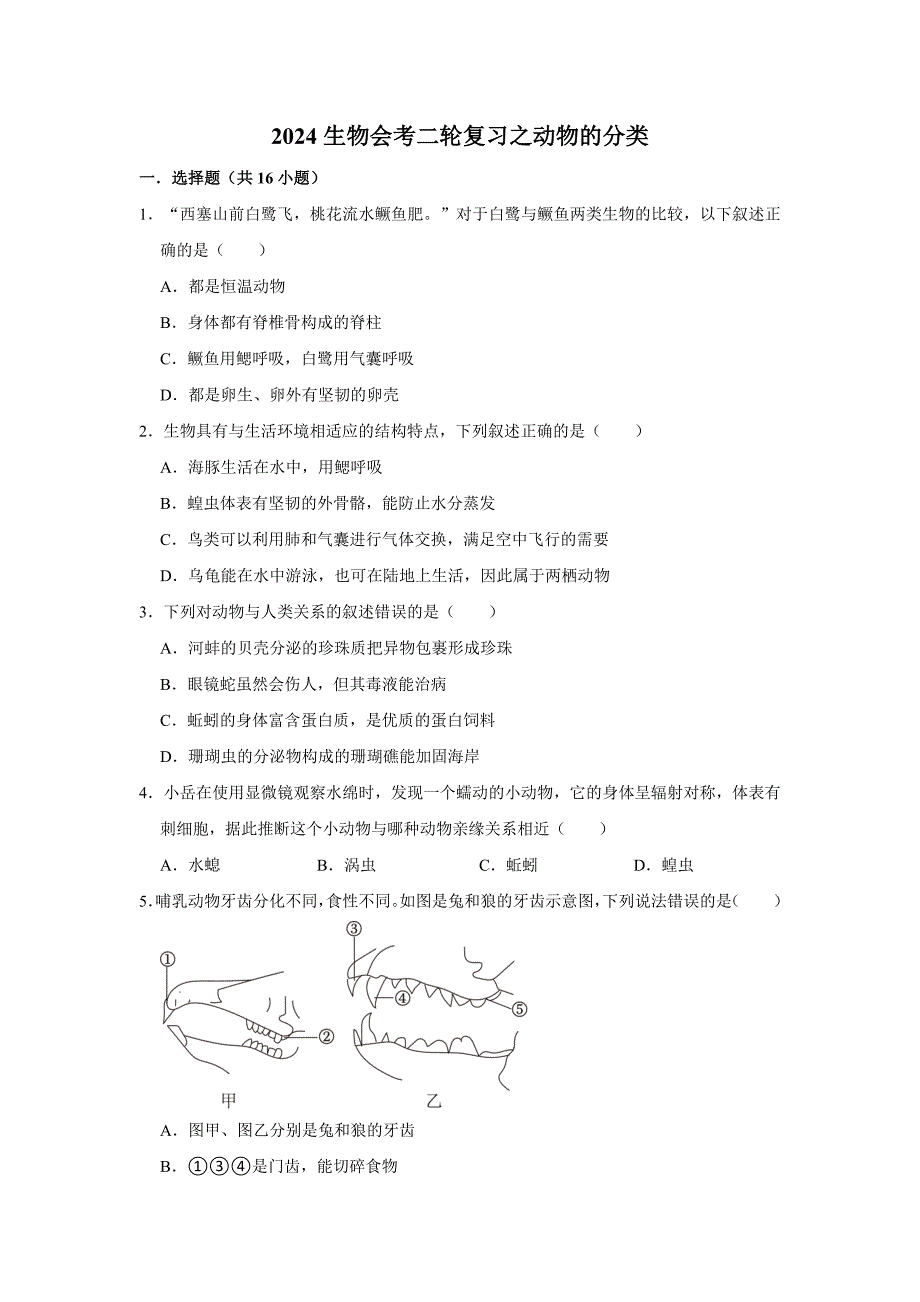 2024 生物会考二轮复习之动物的分类
一．选择题（共 16 小题）
1．“西塞山前白鹭飞，桃花流水鳜鱼肥。”对于白鹭与鳜鱼两类生物的比较，以下叙述正
确的是（　　）
A．都是恒温动物
B．身体都有脊椎骨构成的脊柱
C．鳜鱼用鳃呼吸，白鹭用气囊呼吸
D．都是卵生、卵外有坚韧的卵壳
2．生物具有与生活环境相适应的结构特点，下列叙述正确的是（　　）
A．海豚生活在水中，用鳃呼吸
B．蝗虫体表有坚韧的外骨骼，能防止水分蒸发
C．鸟类可以利用肺和气囊进行气体交换，满足空中飞行的需要
D．乌龟能在水中游泳，也可在陆地上生活，因此属于两栖动物
3．下列对动物与人类关系的叙述错误的是（　　）
A．河蚌的贝壳分泌的珍珠质把异物包裹形成珍珠
B．眼镜蛇虽然会伤人，但其毒液能治病
C．蚯蚓的身体富含蛋白质，是优质的蛋白饲料
D．珊瑚虫的分泌物构成的珊瑚礁能加固海岸
4．小岳在使用显微镜观察水绵时，发现一个蠕动的小动物，它的身体呈辐射对称，体表有
刺细胞，据此推断这个小动物与哪种动物亲缘关系相近（　　）
A．水螅　　B．涡虫　　C．蚯蚓　　D．蝗虫
5．哺乳动物牙齿分化不同，食性不同。如图是兔和狼的牙齿示意图，下列说法错误的是（　　）
① ② ③ ④ ⑤
甲　　乙
A．图甲、图乙分别是兔和狼的牙齿
B．①③④是门齿，能切碎食物